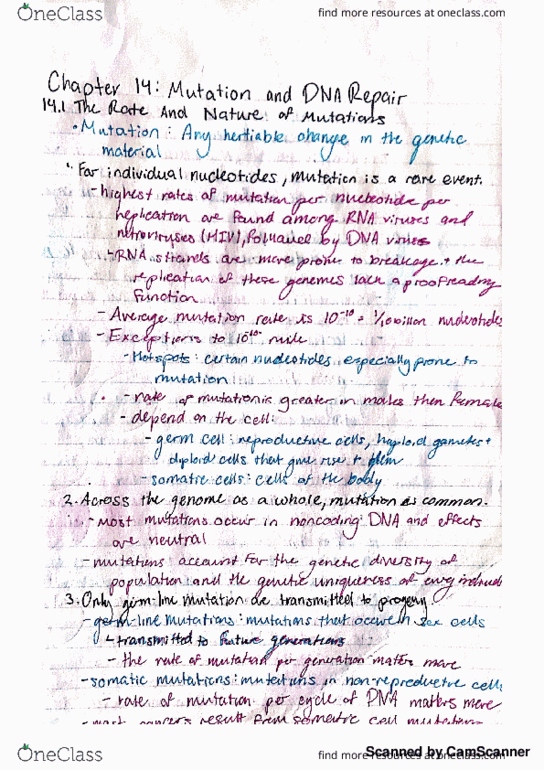 OneClass
find more resources at oneclass.com
Chapter 14: Mutation and DNA Repair
14.1 The Rate And Nature of Mutations
• Mutation: Any hertiable change in the genetic
material
1. For individual nucleotides, mutation is a rare event.
- highest rates of mutation per nucleotide per
replication are found among RNA viruses and
retroviruses (HIV), followed by DNA viruses
- RNA strands are more prone to breakage + the
replication of these genomes lack a proofreading
function
- Average mutation rate is 10⁻¹⁰ = 1/10 billion nucleotides
- Exceptions to 10⁻¹⁰ rule
- Hotspots: certain nucleotides especially prone to
mutation
- rate of mutation is greater in males then females
- depend on the cell:
- germ cell: reproductive cells, haploid gametes +
diploid cells that give rise + them
- somatic cells: cells of the body
2. Across the genome as a whole, mutation is common.
- most mutations occur in noncoding DNA and effects
are neutral
- mutations account for the genetic diversity of
population and the genetic uniqueness of every
3. Only germ-line mutation are transmitted to progeny
- germ-line mutations: mutations that occur in sex cells
- transmitted to future generations
- the rate of mutation per generation matters more
- somatic mutations: mutations in non-reproductive cells
- rate of mutation per cycle of DNA matters more
- most cancers result from somatic cell mutations
OneClass
find more resources at oneclass.com
Scanned by CamScanner